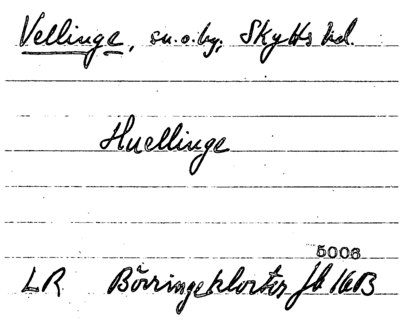 Vellinge, sn.o.by, Skytts hd.
Huellinge
5006
LR Börringekloster jb 16B